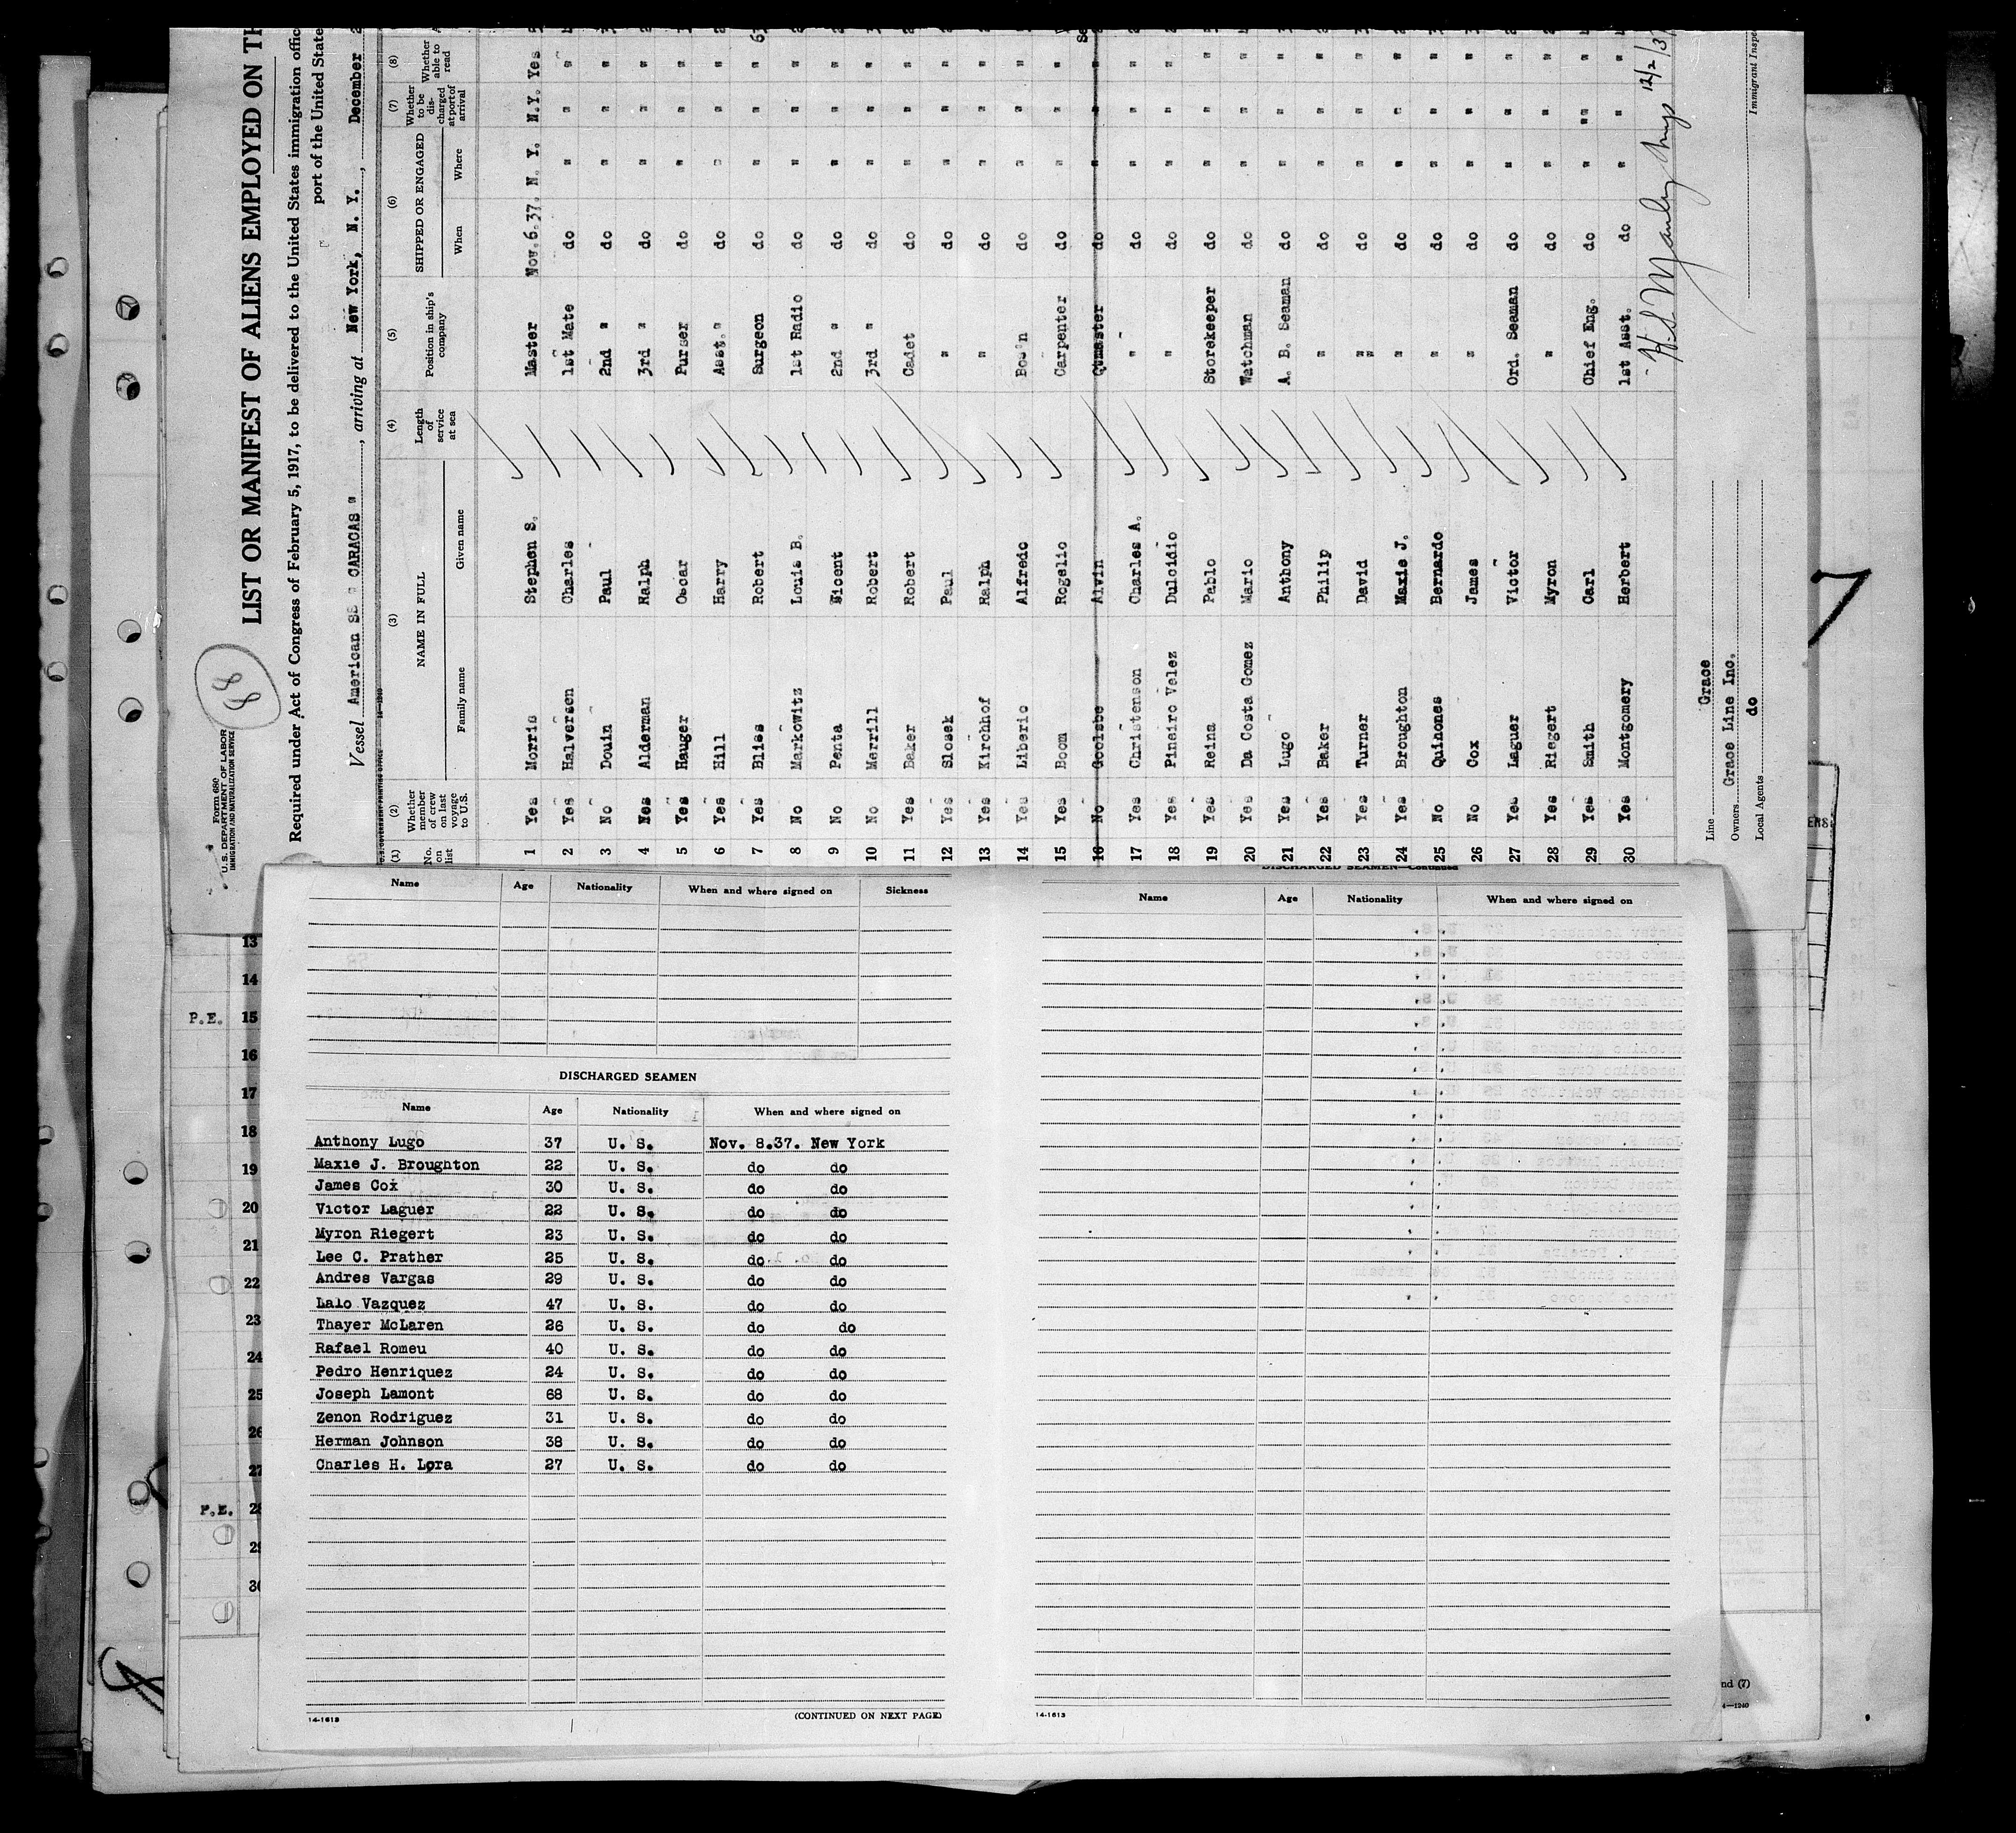 Form 680
U.S. DEPARTMENT OF LABOR
IMMIGRATION AND NATURALIZATION SERVICE
88
LIST OR MANIFEST OF ALIENS EMPLOYED ON TH
Required under Act of Congress of February 5, 1917, to be delivered to the United States immigration offic
port of the United State
Vessel American SS " CARACAS ", arriving at New York, N. Y., December 2
(1) (2) (3) (4) (5) (6) (7) (8)
No. on list Whether member of crew on last voyage to U.S. NAME IN FULL Length of service at sea Position in ship's company SHIPPED OR ENGAGED Whether to be discharged at port of arrival Whether able to read
Family name Given name When Where
1 Yes Morris Stephen S. Master Nov.6.37. N. Y. N.Y. Yes
2 Yes Halversen Charles 1st Mate do " " "
3 No Douin Paul 2nd " do " " "
4 Yes Alderman Ralph 3rd " do " " "
5 Yes Hauger Oscar Purser do " " "
6 Yes Hill Harry Asst. " do " " "
7 Yes Bliss Robert Surgeon do " " "
8 No Markowitz Louis B. 1st Radio do " " "
9 No Penta Vicent 2nd " do " " "
10 No Merrill Robert 3rd " do " " "
11 Yes Baker Robert Cadet do " " "
12 Yes Slosek Paul " do " " "
13 Yes Kirchhof Ralph " do " " "
14 Yes Liberio Alfredo Bos'n do " " "
15 Yes Boom Rogelio Carpenter do " " "
16 No Goolsbe Alvin Qtmaster do " " "
17 Yes Christenson Charles A. " do " " "
18 Yes Pineiro Velez Dulcidio " do " " "
19 Yes Reina Pablo Storekeeper do " " "
20 Yes Da Costa Gomez Mario Watchman do " " "
21 Yes Lugo Anthony A. B. Seaman do " " "
22 Yes Baker Philip " do " " "
23 Yes Turner David " do " " "
24 Yes Broughton Maxie J. " do " " "
25 No Quinones Bernardo " do " " "
26 No Cox James " do " " "
27 Yes Laguer Victor Ord. Seaman do " " "
28 Yes Riegert Myron " do " " "
29 Yes Smith Carl Chief Eng. do " " "
30 Yes Montgomery Herbert 1st Asst. do " " "
12/2/37
Immigrant Inspe
Line Grace
Owners Grace Line Inc.
Local Agents do
7
Name Age Nationality When and where signed on Sickness
DISCHARGED SEAMEN
Name Age Nationality When and where signed on
Anthony Lugo 37 U. S. Nov. 8.37. New York
Maxie J. Broughton 22 U. S. do do
James Cox 30 U. S. do do
Victor Laguer 22 U. S. do do
Myron Riegert 23 U. S. do do
Lee C. Prather 25 U. S. do do
Andres Vargas 29 U. S. do do
Lalo Vazquez 47 U. S. do do
Thayer McLaren 26 U. S. do do
Rafael Romeu 40 U. S. do do
Pedro Henriquez 24 U. S. do do
Joseph Lamont 68 U. S. do do
Zenon Rodriguez 31 U. S. do do
Herman Johnson 38 U. S. do do
Charles H. Lora 27 U. S. do do
14-1613
(CONTINUED ON NEXT PAGE)
DISCHARGED SEAMEN—Continued
Name Age Nationality When and where signed on
14-1613
13
14
P.E. 15
16
17
18
19
20
21
22
23
24
25
26
27
P.E. 28
29
30
nd (7)
4—1240